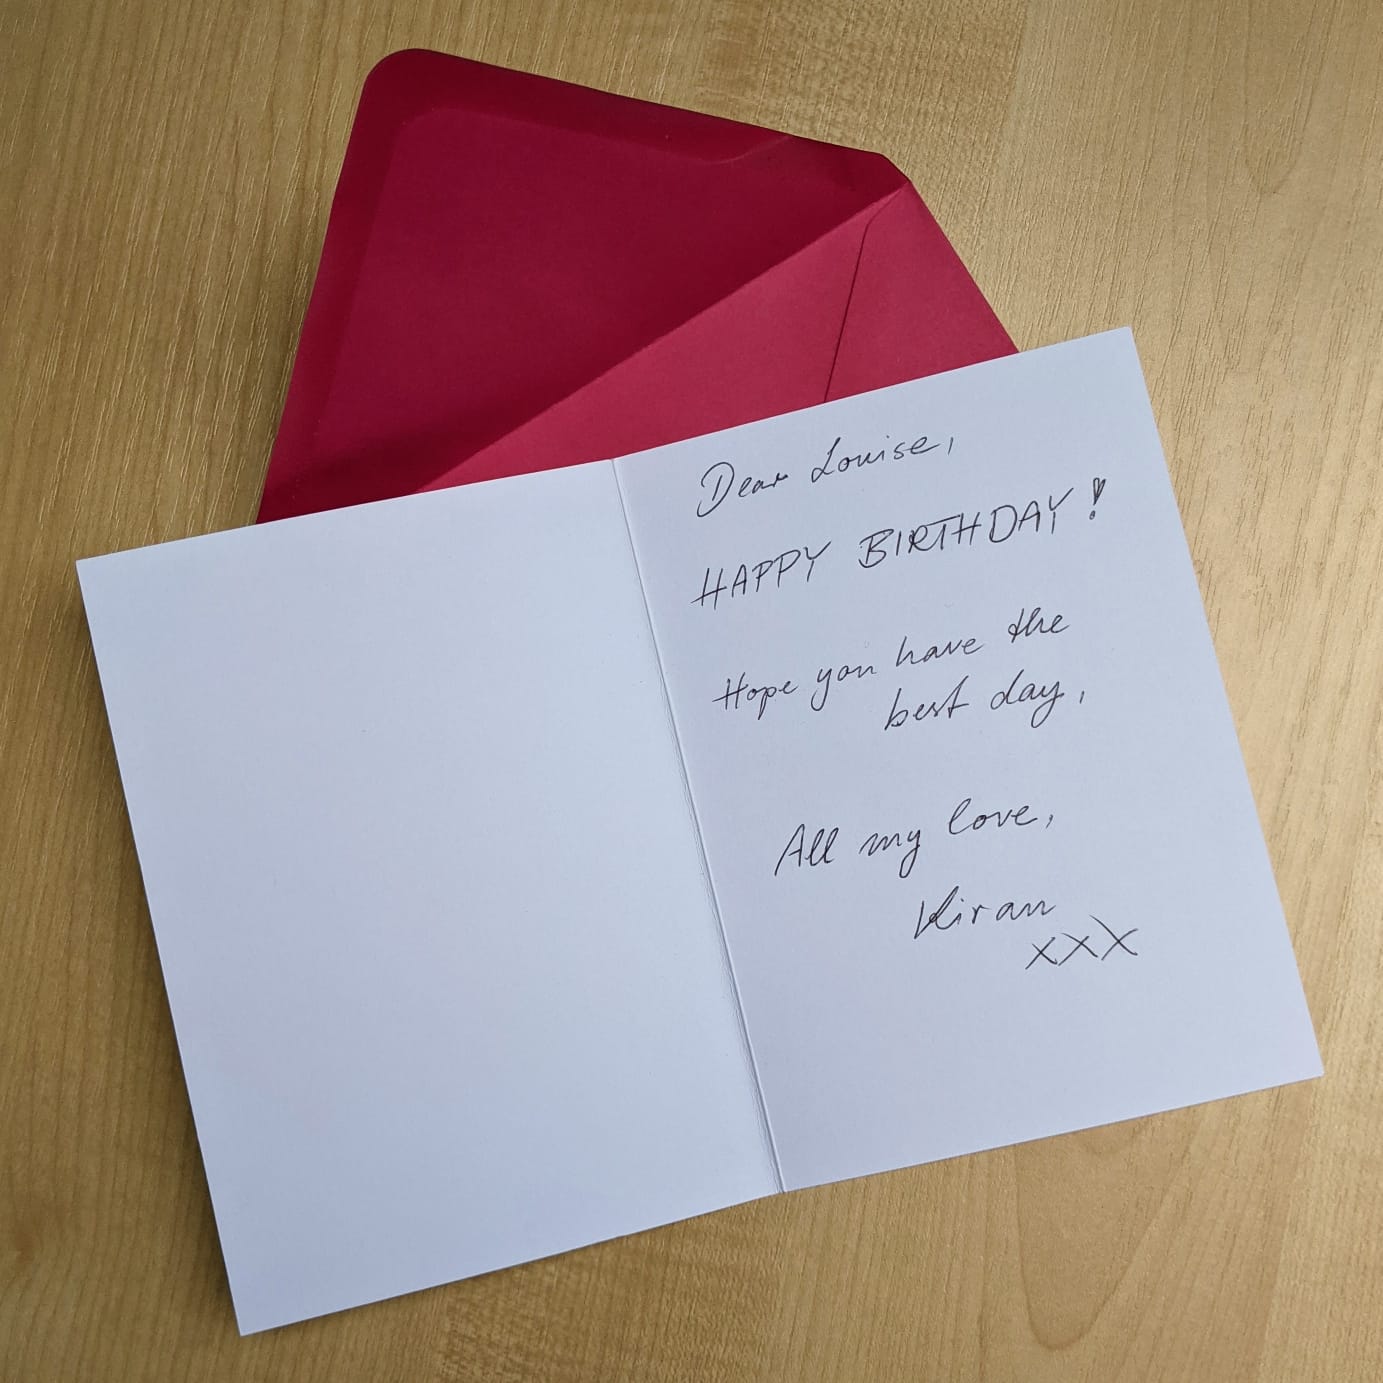 Dear Louise,
HAPPY BIRTHDAY!
Hope you have the
best day,
All my love,
Kiran
xxx